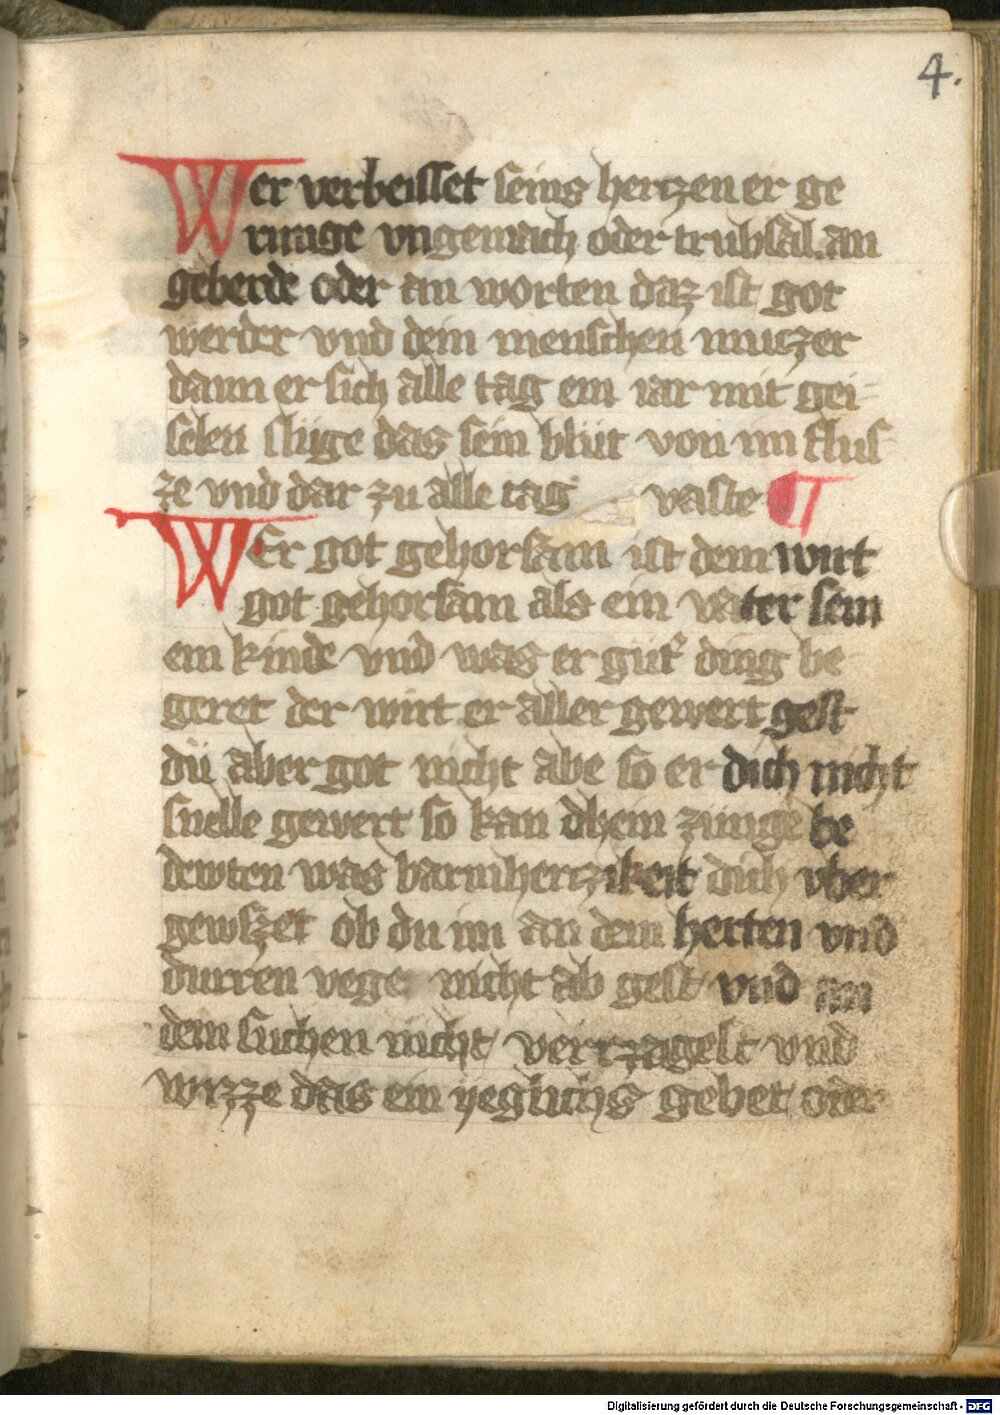 4.
Wer verbeisset seins hertzen er ge
rnnge vngemach oder trubsal an
geberde oder an worten daz ist got
werder vnd dem menschen nuczer
dann er sich alle tag ein iar mit gei-
selen slüge das sein blüt von im flus
ze vnd dar zu alle tag vaste
WEr got gehorsam ist dem wirt
got gehorsam als ein vater sein
em kinde vnd was er güt' ding be
geret der wirt er aller gewert gest
dü aber got nicht abe so er dich nicht
snelle gewert so kan dhein zunge be
dewten was barmhertzikeit dich vber
gewszet ob du im an dem herten vnd
durren wege nicht ab gest vnd an
dem suchen nicht verrzagest vnd
wizze das ein yeglichs gebet oder
Digitalisierung gefördert durch die Deutsche Forschungsgemeinschaft - DFG